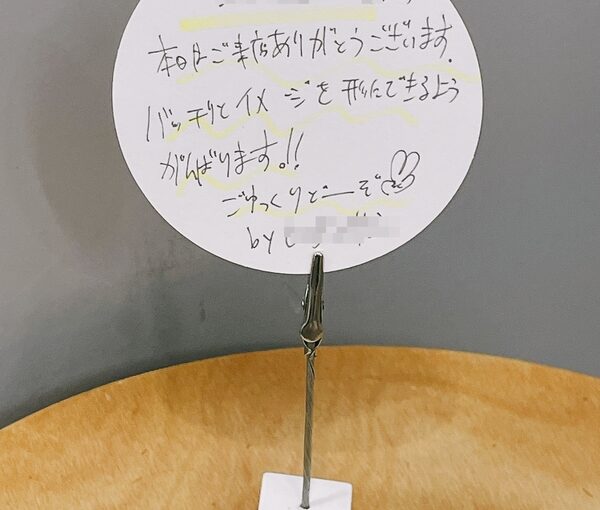 本日はご来店ありがとうございます。
バッチリとイメージを形にできるよう
がんばります。!!
ごゆっくりどーぞ
by